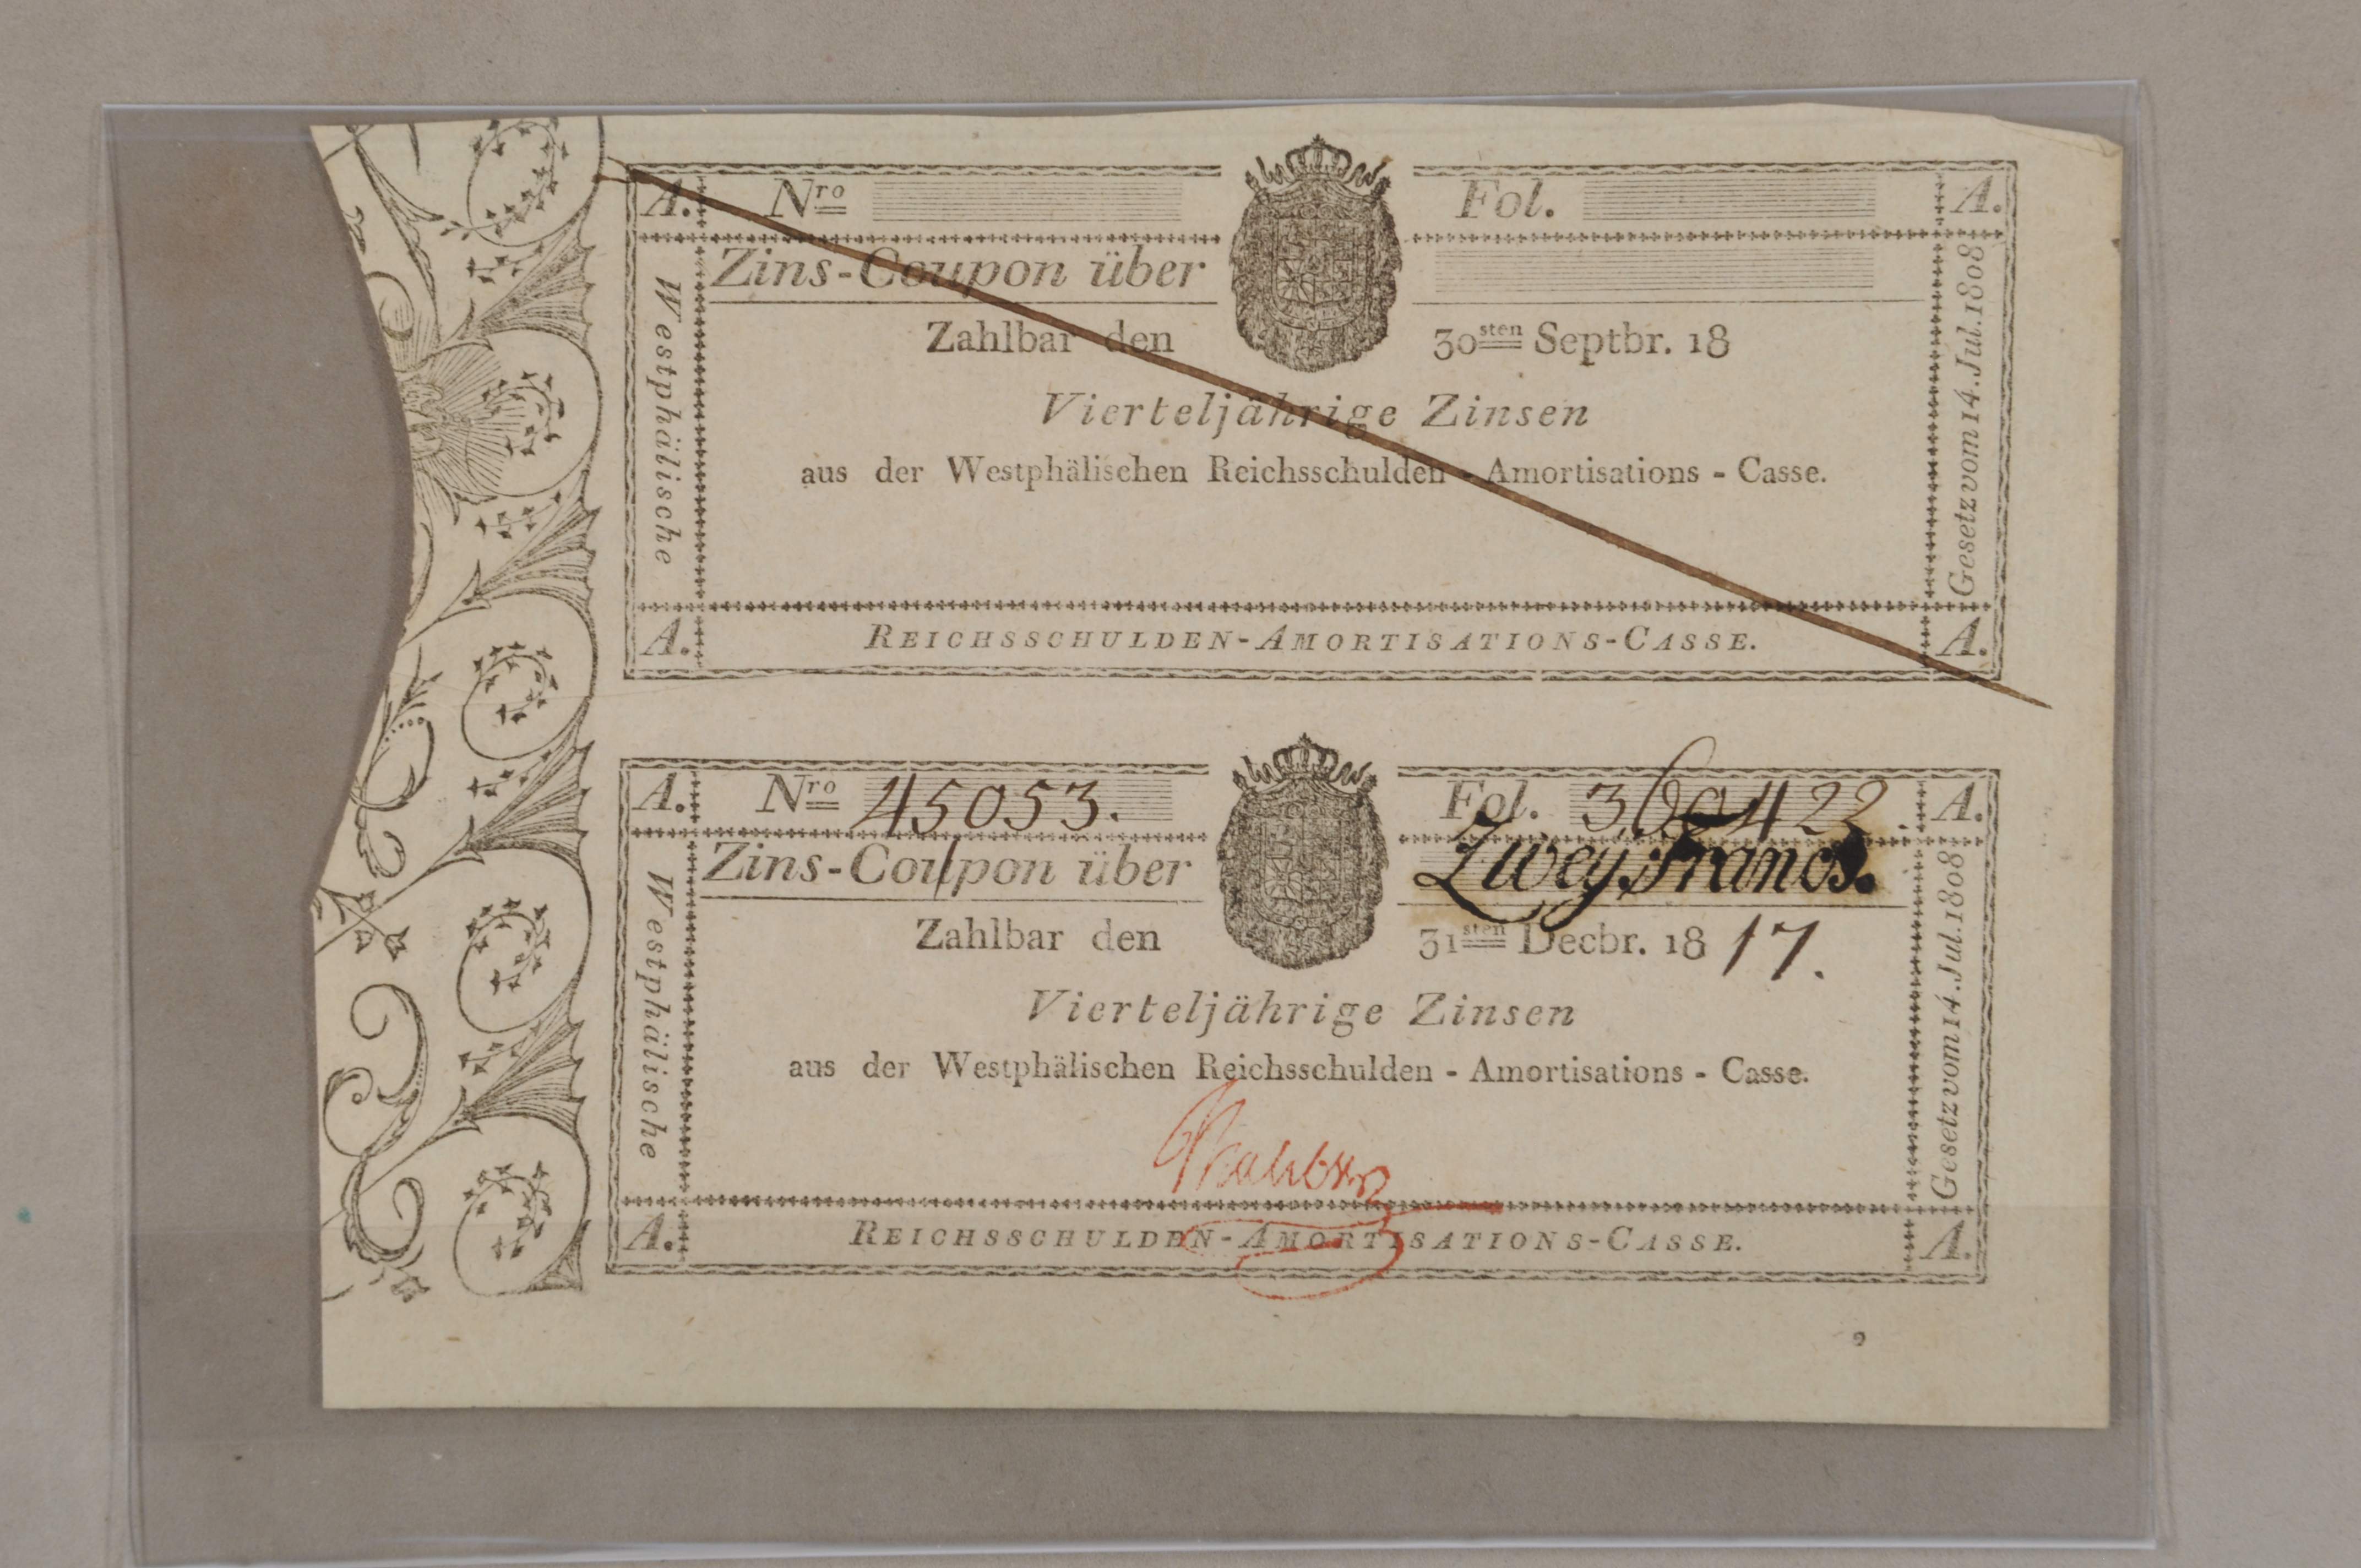 A. Nro Fol. A.
Zins-Coupon über
Zahlbar den 30sten Septbr. 18
Vierteljährige Zinsen
aus der Westphälischen Reichsschulden - Amortisations - Casse.
Westphälische
Gesetz vom 14. Jul. 1808
A. REICHSSCHULDEN-AMORTISATIONS-CASSE. A.
A. Nro 45053. Fol. A.
Zins-Coupon über Zwey Francs.
Zahlbar den 31sten Decbr. 1817.
Vierteljährige Zinsen
aus der Westphälischen Reichsschulden - Amortisations - Casse.
Westphälische
Gesetz vom 14. Jul. 1808
A. REICHSSCHULDEN-AMORTISATIONS-CASSE. A.